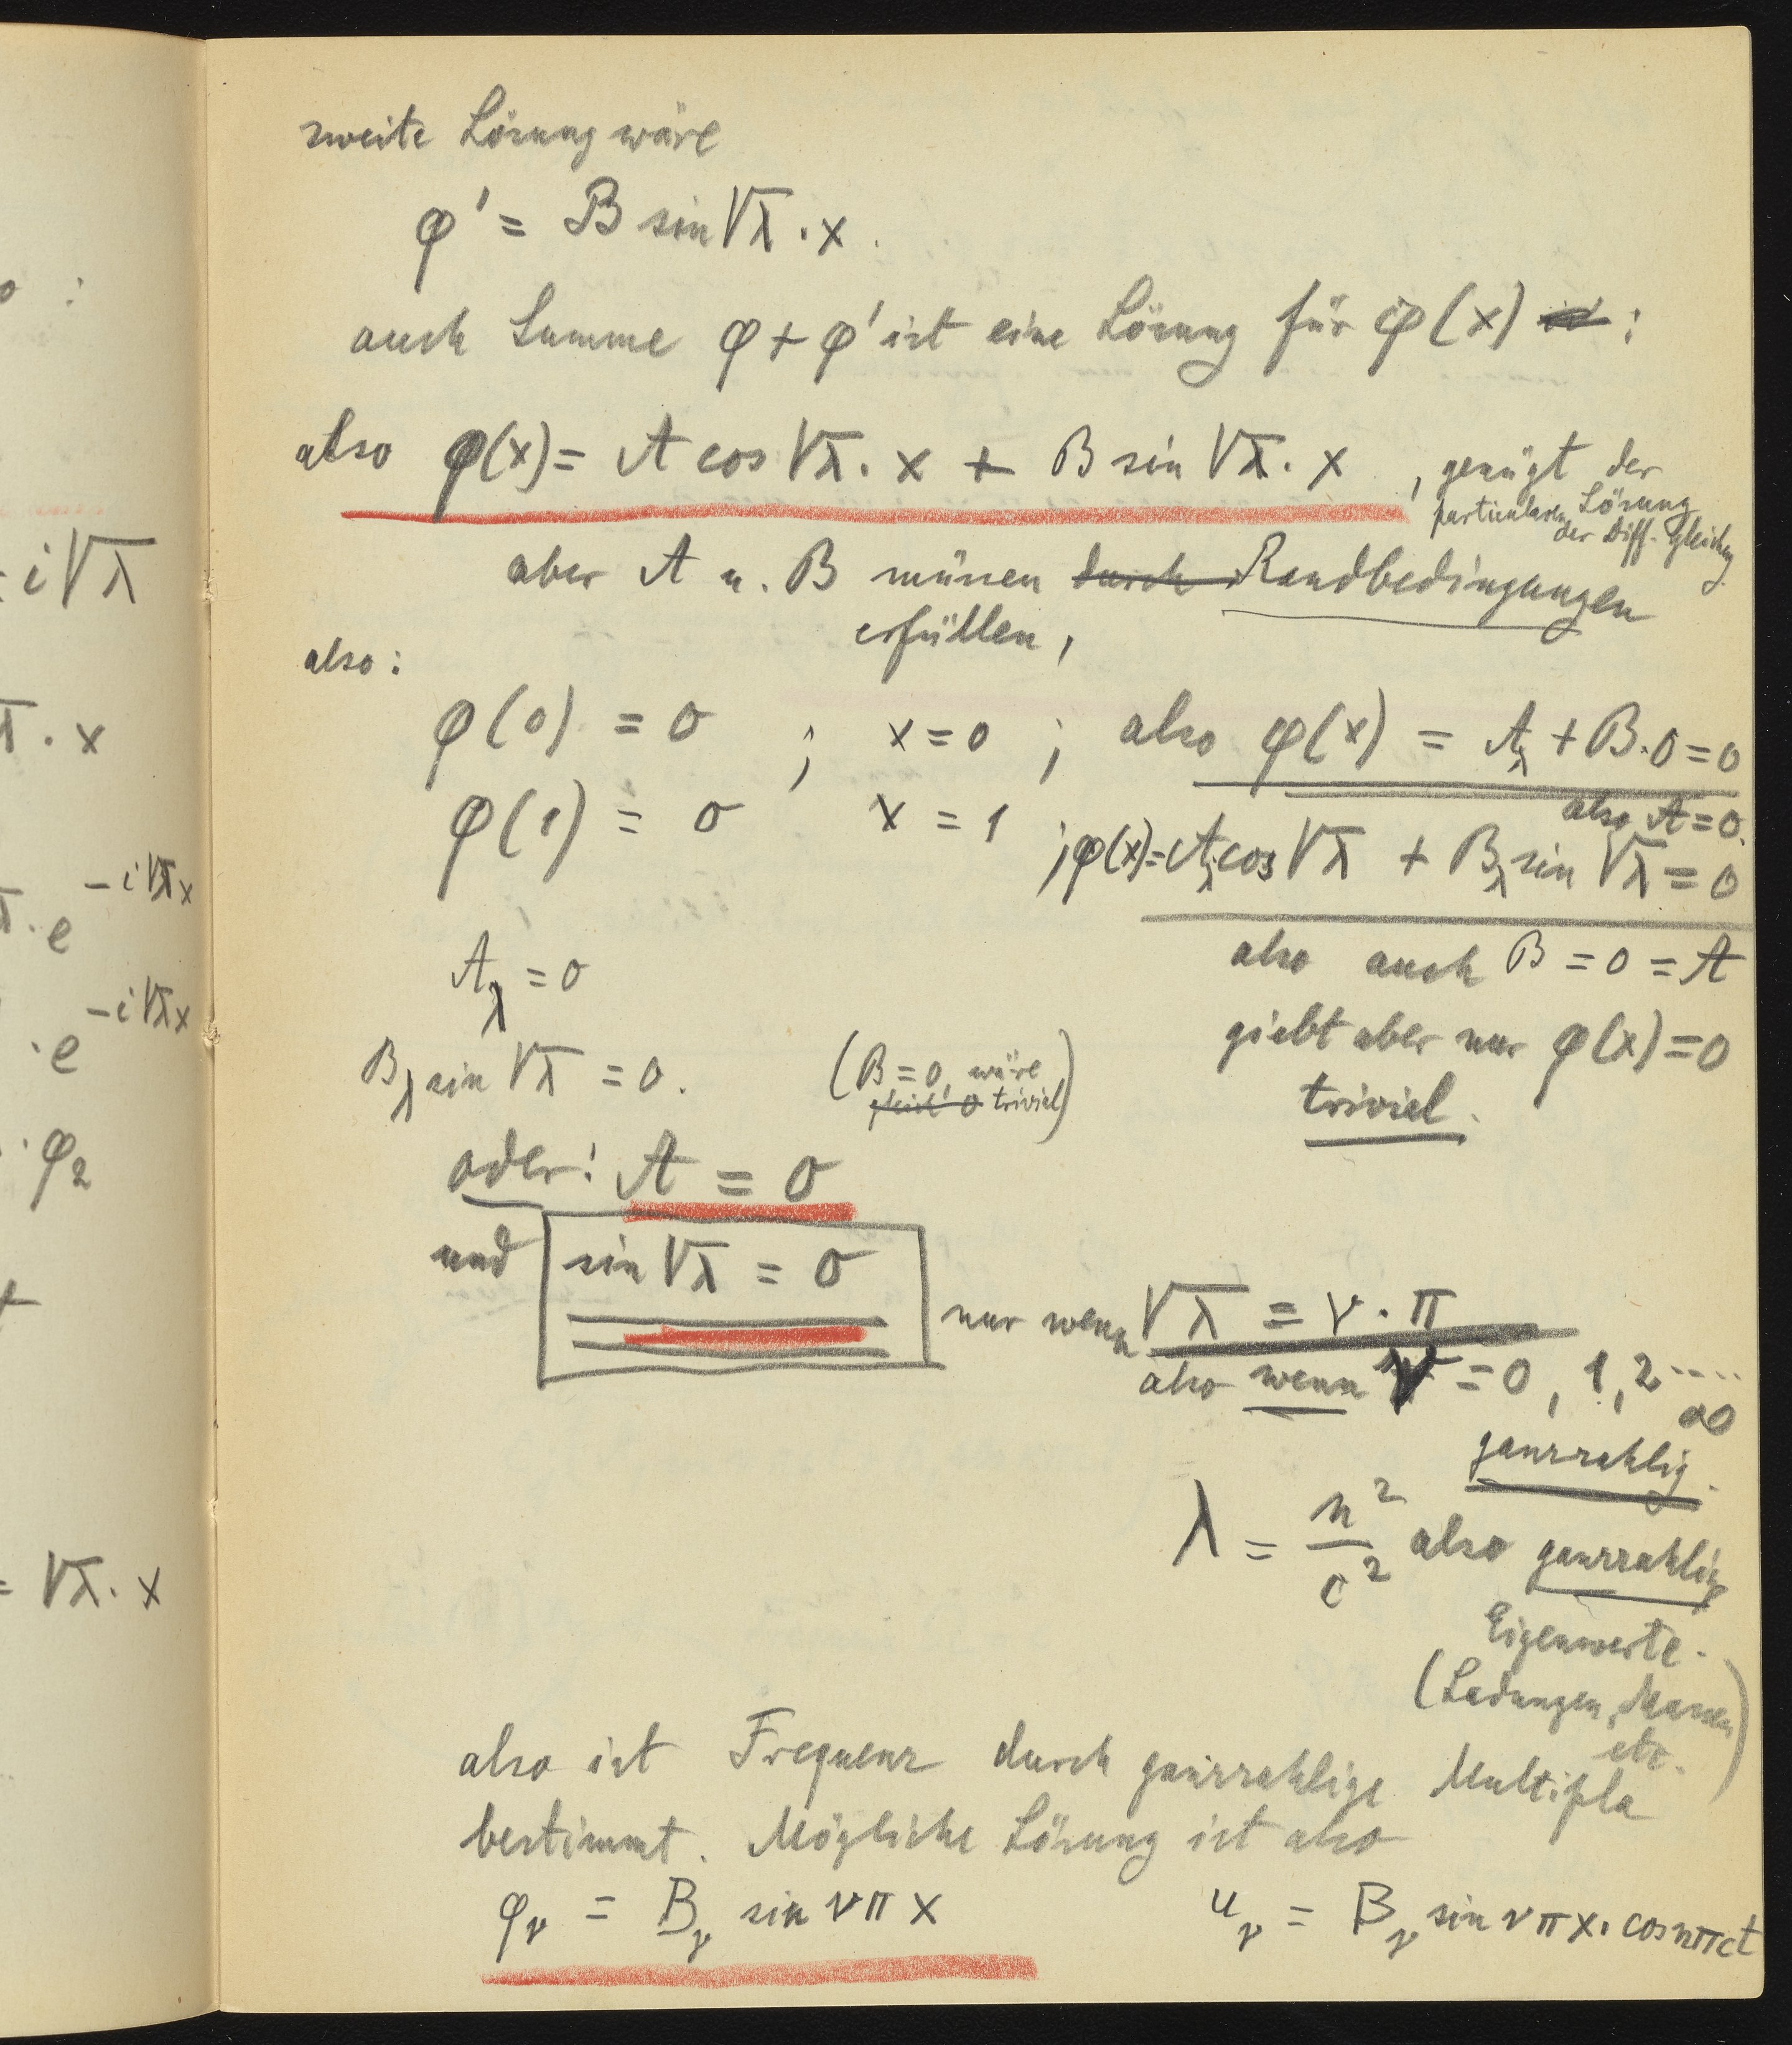 zweite Lösung wäre
φ' = B sin √λ · x .
auch Summe φ + φ' ist eine Lösung für φ(x) :
also φ(x) = A cos √λ · x + B sin √λ · x , genügt der
particularen Lösung
der Diff. Gleichung
aber A u. B müssen durch Randbedingungen
erfüllen,
also:
φ(0) = 0 ; x = 0 ; also φ(x) = A_λ + B·0 = 0
also A = 0.
φ(1) = 0 x = 1 ; φ(x) = A_λ cos √λ + B_λ sin √λ = 0
also auch B = 0 = A
A_λ = 0
giebt aber nur φ(x) = 0
triviel.
B_λ sin √λ = 0. (B = 0, wäre
gleich 0 triviel)
oder: A = 0
und sin √λ = 0
nur wenn √λ = ν · π
also wenn ν = 0, 1, 2 ....
∞
ganzzahlig.
λ = n²/c² also ganzzahlig
Eigenwerte.
(Ladungen, Massen
etc.)
also ist Frequenz durch ganzzahlige Multipla
bestimmt. Mögliche Lösung ist also
φ_ν = B_ν sin ν π x u_ν = B_ν sin ν π x · cos n π c t
o :
= i√λ
√λ · x
· e^{-i√λx}
· e^{-i√λx}
· φ₂
= √λ · x